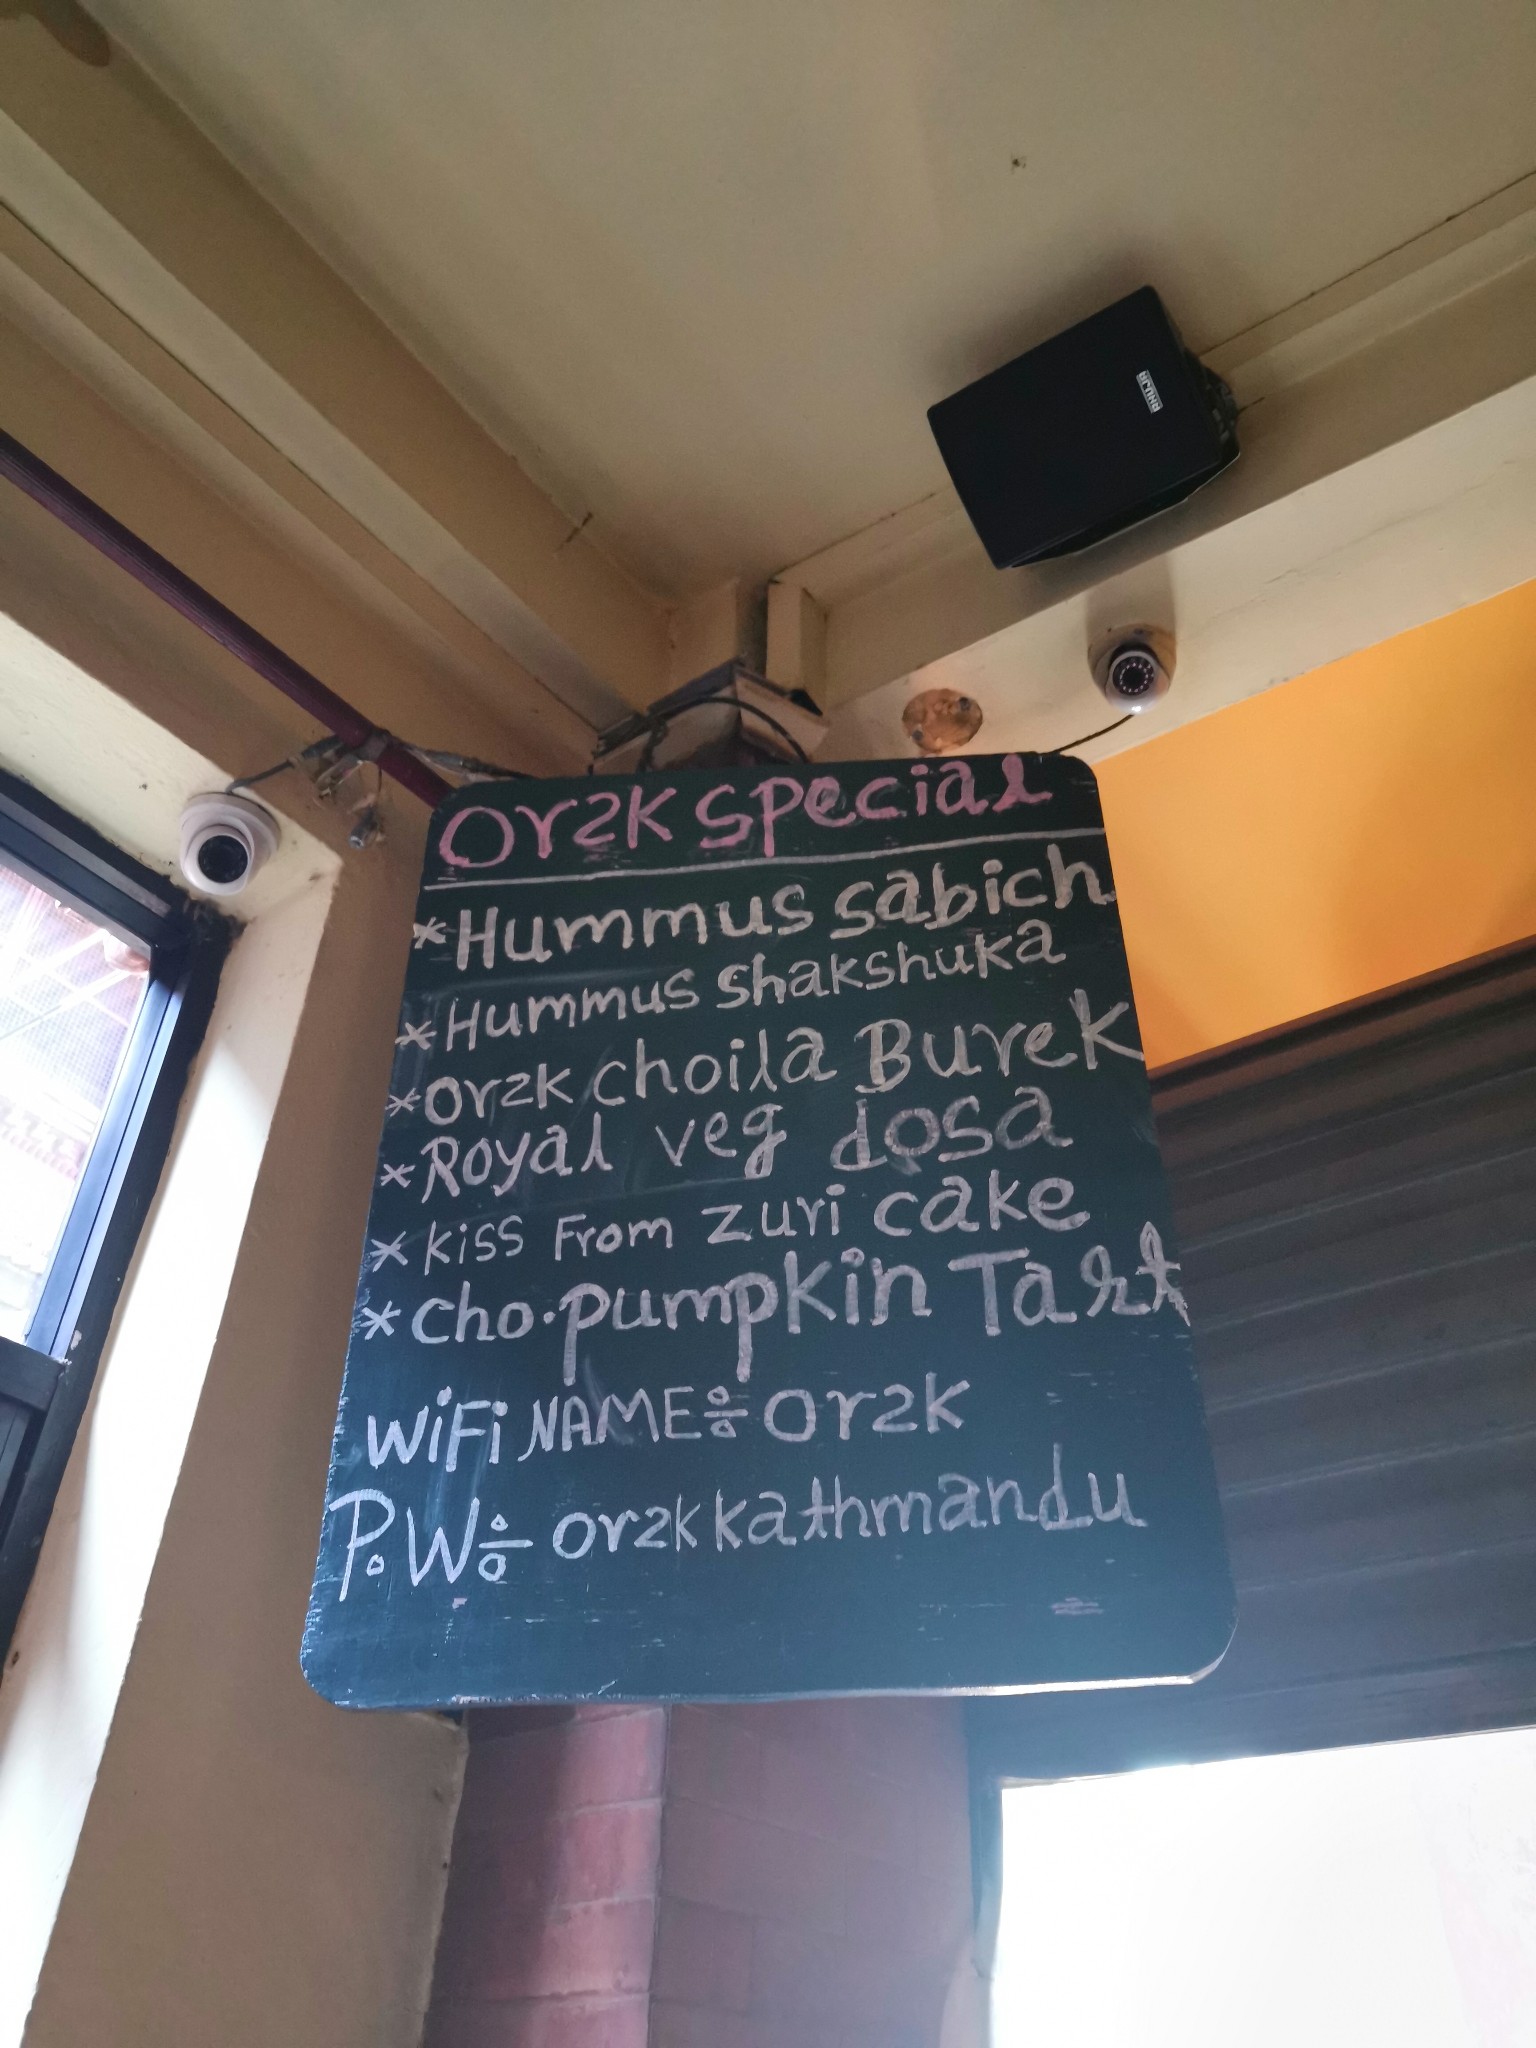 or2k special
*Hummus sabich
*Hummus shakshuka
*or2k choila Burek
*Royal veg dosa
*kiss From zuri cake
*cho.pumpkin Tart
WiFi NAME÷ or2k
P.W÷ or2kkathmandu
AHUJA